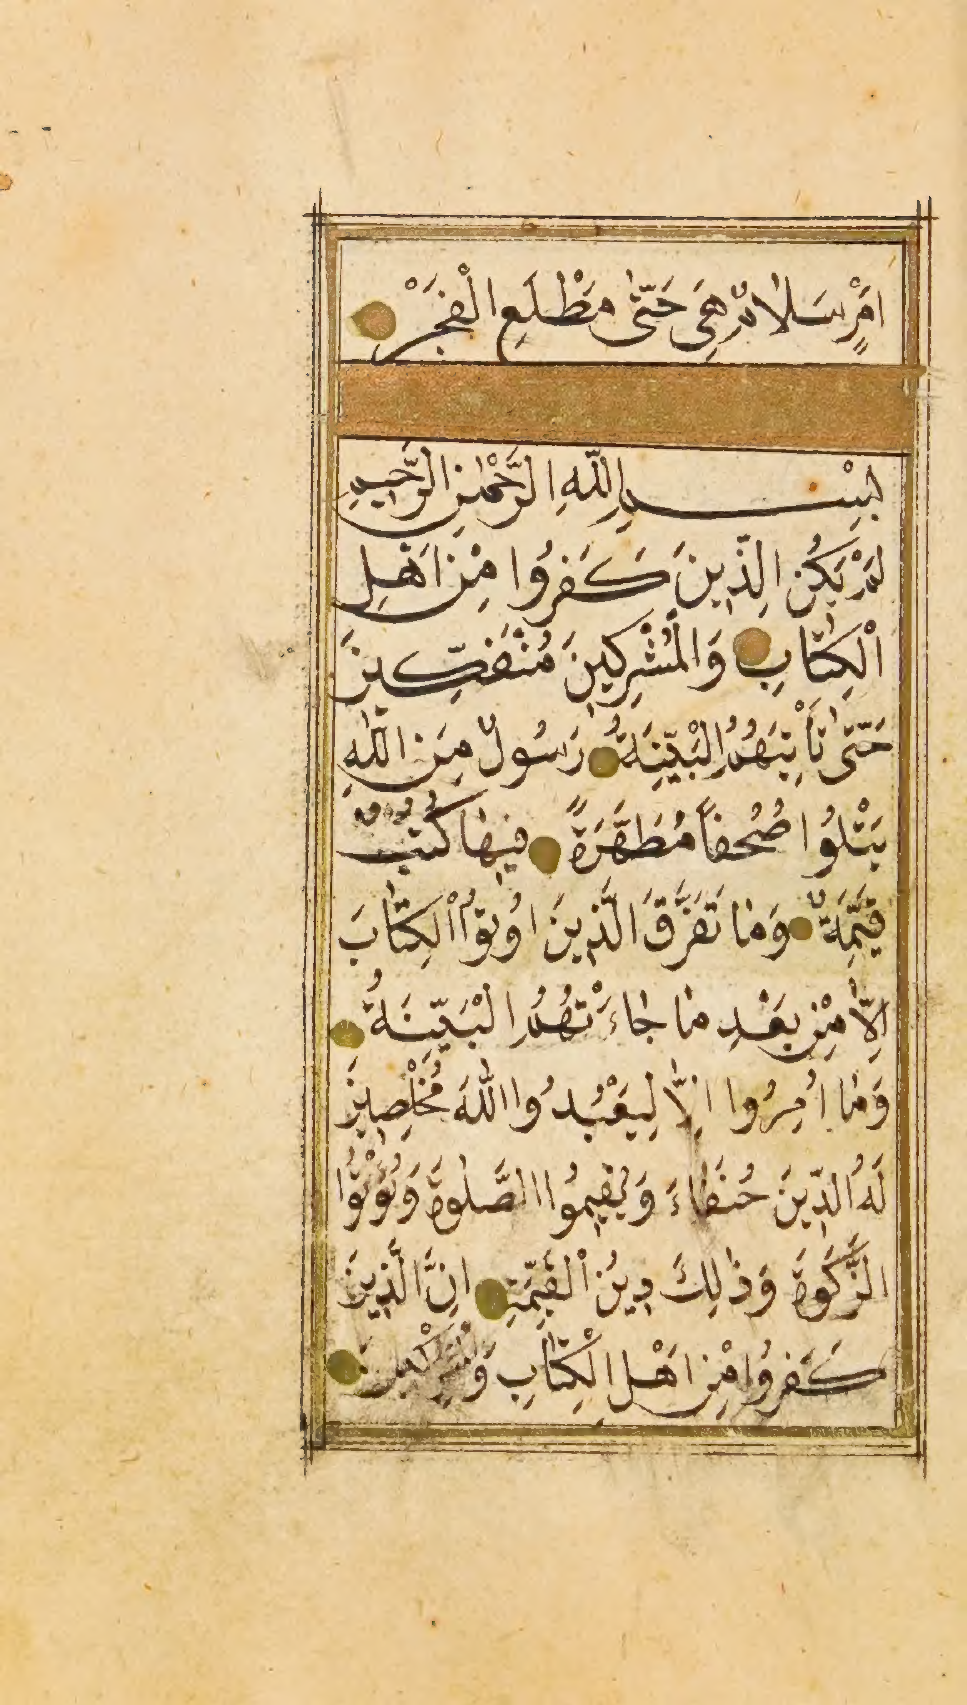 امْرٍ سَلَامٌ هِيَ حَتّٰى مَطْلَعِ الْفَجْرِ
بِسْمِ اللّٰهِ الرَّحْمٰنِ الرَّحِيمِ
لَمْ يَكُنِ الَّذِينَ كَفَرُوا مِنْ اَهْلِ
الْكِتَابِ وَالْمُشْرِكِينَ مُنْفَكِّينَ
حَتّٰى تَأْتِيَهُمُ الْبَيِّنَةُ رَسُولٌ مِنَ اللّٰهِ
يَتْلُوا صُحُفاً مُطَهَّرَةً فِيهَا كُتُبٌ
قَيِّمَةٌ وَمَا تَفَرَّقَ الَّذِينَ اُوتُوا الْكِتَابَ
اِلَّا مِنْ بَعْدِ مَا جَاءَتْهُمُ الْبَيِّنَةُ
وَمَا اُمِرُوا اِلَّا لِيَعْبُدُوا اللّٰهَ مُخْلِصِينَ
لَهُ الدِّينَ حُنَفَاءَ وَيُقِيمُوا الصَّلٰوةَ وَيُؤْتُوا
الزَّكٰوةَ وَذٰلِكَ دِينُ الْقَيِّمَةِ اِنَّ الَّذِينَ
كَفَرُوا مِنْ اَهْلِ الْكِتَابِ